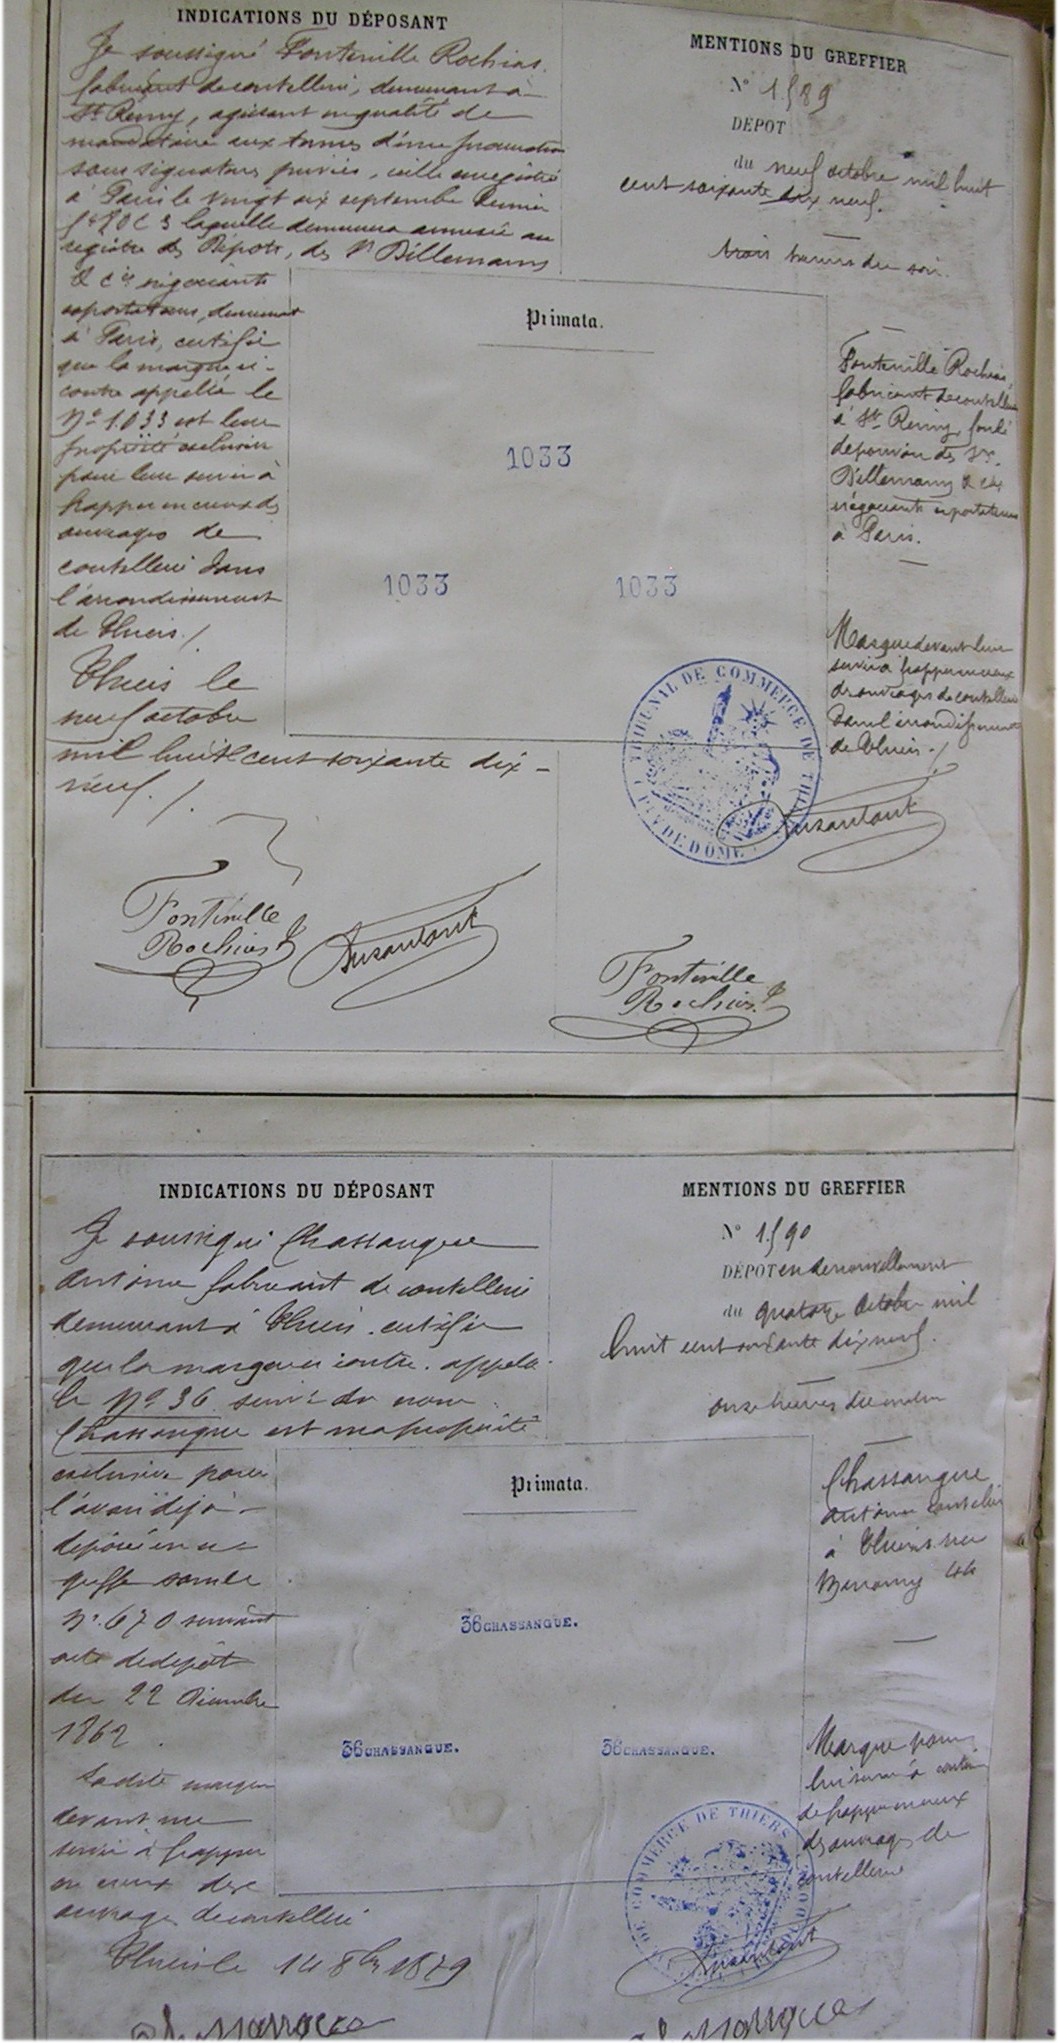 INDICATIONS DU DÉPOSANT
Je soussigné Fontenille Rochias
fabricant de coutellerie, demeurant à
St Remy, agissant en qualité de
mandataire aux termes d'une procuration
sous signatures privées, icelle enregistrée
à Paris le vingt six septembre dernier
laquelle demeurera annexée au
registre des Dépots, des Sr Billemans
& Cie négociants
exportateurs, demeurant
à Paris, certifie
que la marque ci-
contre appelée le
No 1033 est leur
propriété exclusive
pour leur servir à
frapper en creux des
ouvrages de
coutellerie dans
l'arrondissement
de Thiers./
Thiers le
neuf octobre
mil huit cent soixante dix-
neuf./.
Fontenille
Rochias
MENTIONS DU GREFFIER
No 1589
DÉPOT
du neuf octobre mil huit
cent soixante dix neuf.
trois heures du soir.
Primata.
1033
1033 1033
Fontenille Rochias,
fabricant de coutellerie
à St Remy, fondé
de pouvoir des Srs
Billemans & Cie
négociants exportateurs
à Paris.
Marque devant leur
servir à frapper en creux
des ouvrages de coutellerie
dans l'arrondissement
de Thiers./
TRIBUNAL DE COMMERCE DE THIERS
PUY DE DÔME
Fontenille
Rochias
INDICATIONS DU DÉPOSANT
Je soussigné Chassangue
Antoine fabricant de coutellerie
demeurant à Thiers certifie
que la marque ci contre appelée
le No 36 suivi du nom
Chassangue est ma propriété
exclusive pour
l'avoir déjà
déposée en ce
greffe sous le
No 670 suivant
acte de dépôt
du 22 Décembre
1862.
Ladite marque
devant me
servir à frapper
en creux des
ouvrages de coutellerie
Thiers le 14 8bre 1879
Chassangue
MENTIONS DU GREFFIER
No 1590
DÉPOT en renouvellement
du quatorze Octobre mil
huit cent soixante dix neuf.
onze heures du matin
Primata.
36 CHASSANGUE.
36 CHASSANGUE. 36 CHASSANGUE.
Chassangue
Antoine coutelier
à Thiers rue
44
Marque pour
lui servir à
de frapper en creux
des ouvrages de
coutellerie
DE COMMERCE DE THIERS
Chassangue